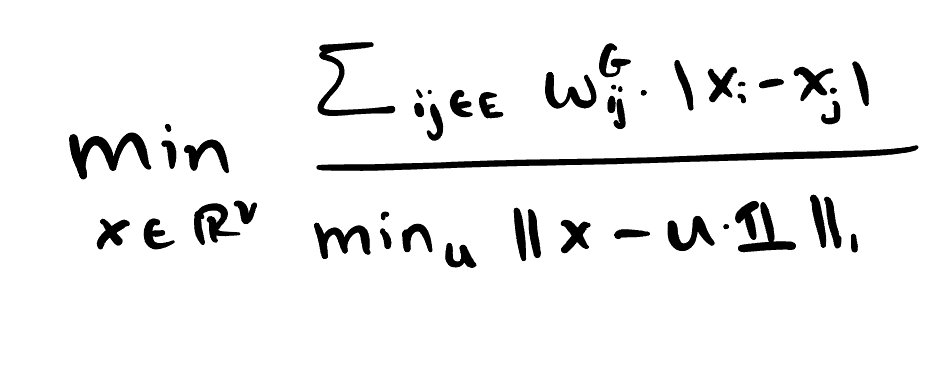 min x ∈ ℝ^V  ∑ ij∈E w^G_ij · |x_i − x_j|
min_u ‖x − u·𝟙‖_1